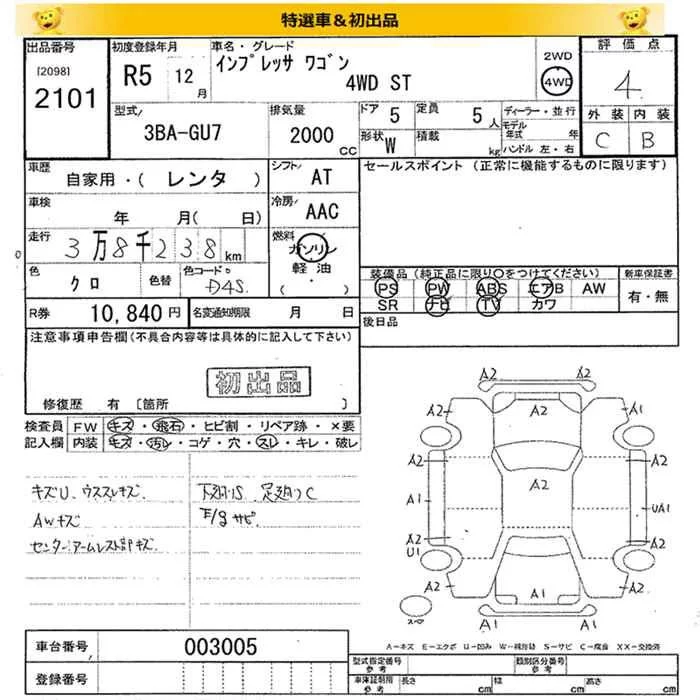 特選車＆初出品
出品番号
[2098]
2101
初度登録年月
R5 12月
車名・グレード
インプレッサ ワゴン
4WD ST
2WD
4WD
評価点
4
外装 内装
C B
型式/
3BA-GU7
排気量
2000 CC
ドア 5
定員 5人
形状 W
積載 kg
ディーラー・並行
モデル年式 年
ハンドル 左・右
車歴
自家用・( レンタ )
シフト/ AT
セールスポイント (正常に機能するものに限ります)
車検
年 月( 日)
冷房/ AAC
走行
3万8千238km
燃料
ガソリン
軽油
( ・ )
色
クロ
色替
色コード
D4S
装備品(純正品に限り○をつけてください)
PS PW ABS エアB AW
SR ナビ TV カワ
新車保証書
有・無
R券 10,840円
名変通知期限 月 日
後日品
注意事項申告欄(不具合内容等は具体的に記入して下さい)
初出品
修復歴 有 [箇所 ]
検査員
記入欄
FW キズ・飛石・ヒビ割・リペア跡・×要
内装 キズ・汚レ・コゲ・穴・スレ・キレ・破レ
キズU、ウススレキズ
AWキズ
センターアームレスト部キズ
下廻りS 足廻りC
E/gサビ
A2 A2
A2 A2 A1
A2 A2
A1 A2 UA1
A2 U1 A2
A2 A1 A2
A1 A1
スペア
A－キズ E－エクボ U－凹み W－補修跡 S－サビ C－腐食 XX－交換済
車台番号 003005
登録番号
型式指定番号
参考
類別区分番号
参考
車庫証明用
参考
長さ cm
幅 cm
高さ cm